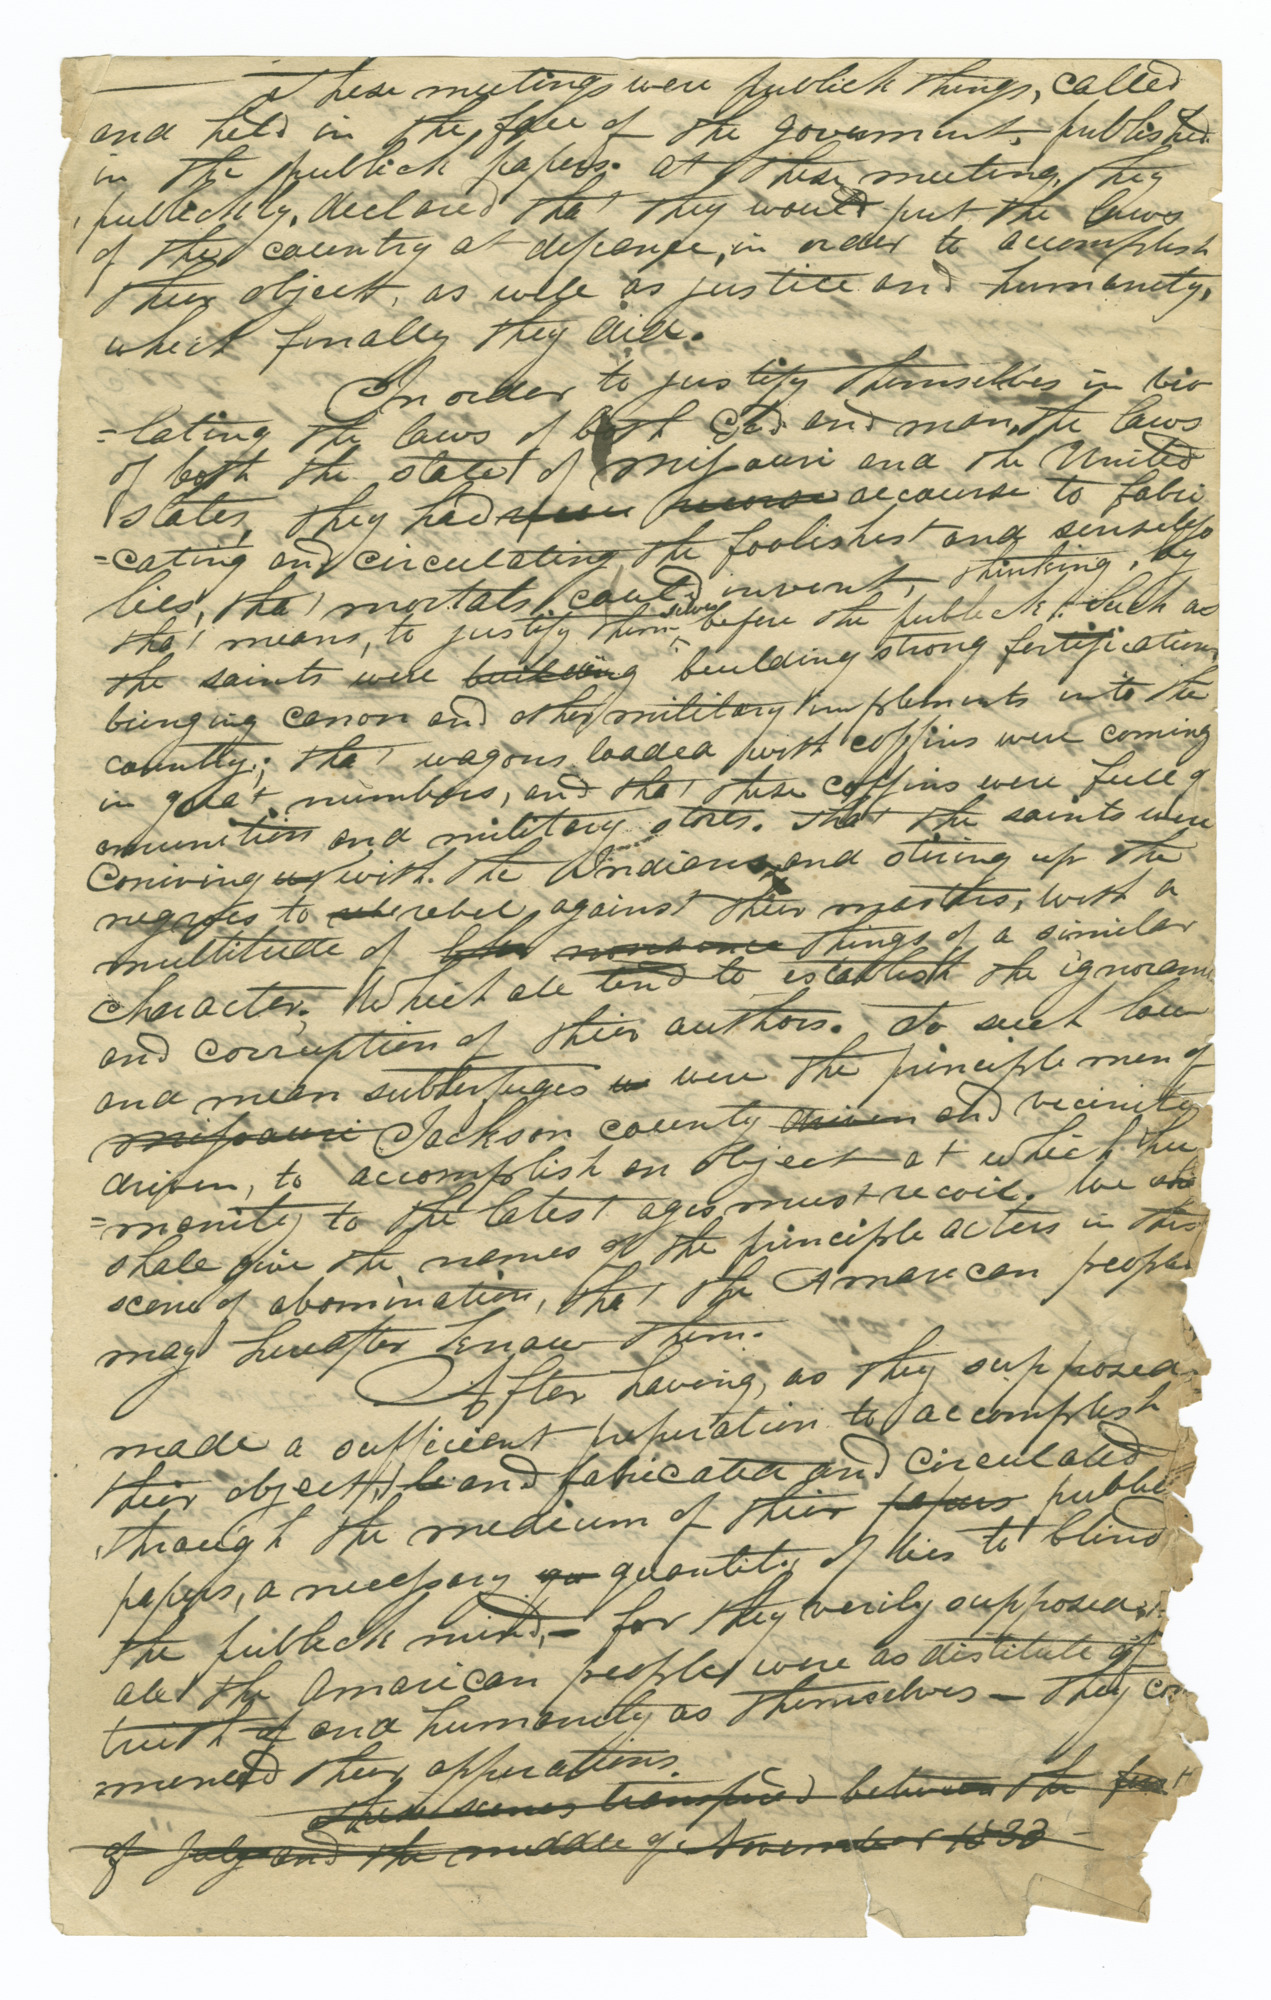 These meetings were publick things, called
and held in the face of the goverment, published
in the publick papers. at these meeting, they
publickly, declared that they would put the laws
of the country at defiance, in order to accomplish
their object, as well as justice and humanity,
which finally they did.
In order to justify themselves in vio
=lating the laws of both God and man, the laws
of both the state of Missouri and the United
States, they had recourse to fabri
=cating and circulating, the foolishest and senseless
lies, that mortals could invent, thinking, by
that means, to justify themselves before the publick. Such as
the saints were building building strong fortifications
bringing canon and other military implements into the
country; that wagons loaded with coffins were coming
in great numbers, and that these coffins were full of
amunition and military stores. that the saints were
coniving with the Indians, and stiring up the
negroes to rebel against their masters, with a
multitude of things of a similar
character. Which all tend to establish the ignorance
and corruption of their authors. To such low
and mean subterfuges were the principle men of
Missouri Jackson county driven and vicinity
driven, to accomplish an object at which hu
=manity to the latest ages must recoil. We
shall give the names of the principle acters in this
scene of abomination, that the American people
may hereafter know them.
After having, as they supposed
made a sufficient preperation to accomplish
their object, and fabricated and circulated
through the medium of their papers public
papers, a necessary quantity of lies to blind
the publick mind,— for they verily supposed
all the American people were as distitute of
truth of and humanity as themselves — they com
menced their opperations.
These scenes transpired between the first
of July and the middle of November 1833 —